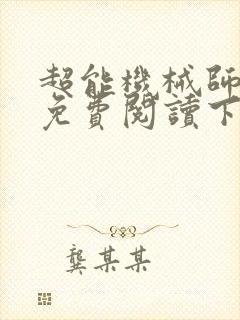 超能機械師
免費閱讀下
龔某某